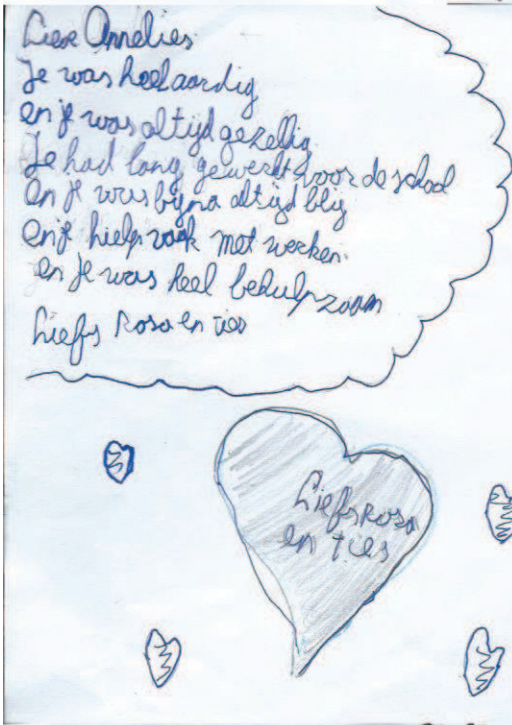 Lieve Annelies
Je was heel aardig
en je was altijd gezellig
Je had lang gewerkt voor de school
en je was bijna altijd blij
en je hielp vaak met werken.
en je was heel behulpzaam
Liefs Rosa en Ties
Liefs Rosa
en Ties